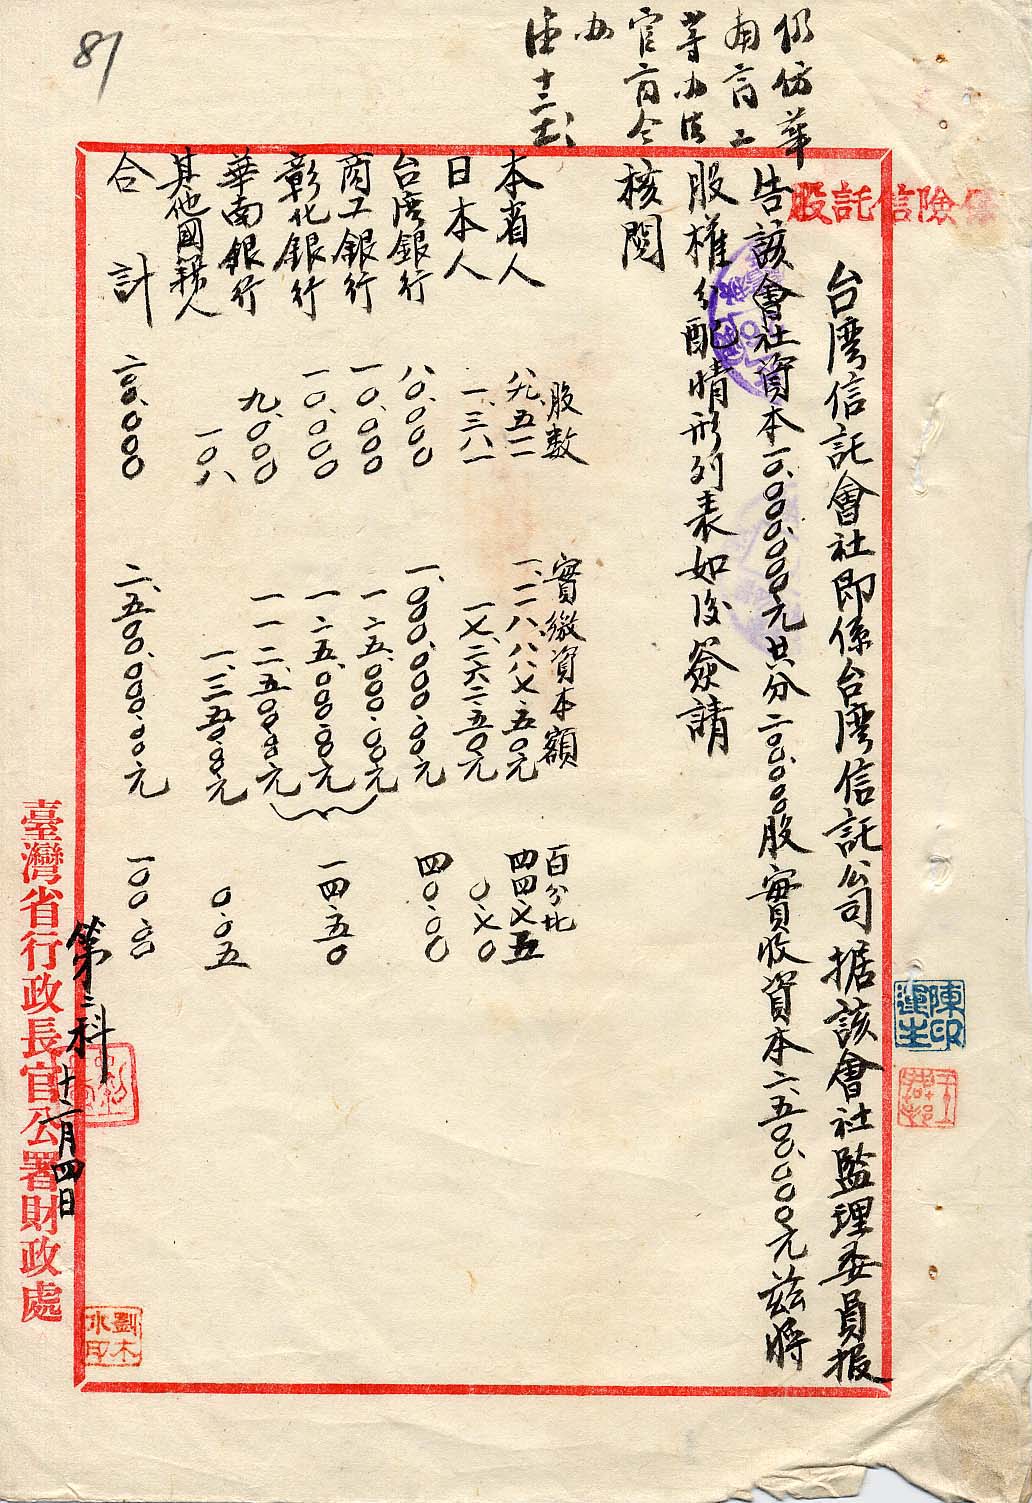 81
仍仿華
南商工
等办法
官商合
办
保險信託股
台湾信託會社即係台湾信託公司据該會社監理委員报
告該會社資本一〇、〇〇〇、〇〇〇元共分二〇〇、〇〇〇股實收資本二、五〇〇、〇〇〇元茲將
股權分配情形列表如后簽請
核閱
股数 實繳資本額 百分比
本省人 八九、五一一 一、一一八、八八七・五〇元 四四・七五
日本人 一、三八一 一七、二六二・五〇元 〇・七〇
台湾銀行 八〇、〇〇〇 一、〇〇〇、〇〇〇・〇〇元 四〇・〇〇
商工銀行 一〇、〇〇〇 一二五、〇〇〇・〇〇元
彰化銀行 一〇、〇〇〇 一二五、〇〇〇・〇〇元 一四・五〇
華南銀行 九、〇〇〇 一一二、五〇〇・〇〇元
其他國籍人 一〇八 一、三五〇・〇〇元 〇・〇五
合計 二〇〇、〇〇〇 二、五〇〇、〇〇〇・〇〇元 一〇〇・〇〇
第二科 十二月四日
臺灣省行政長官公署財政處
陳印運生